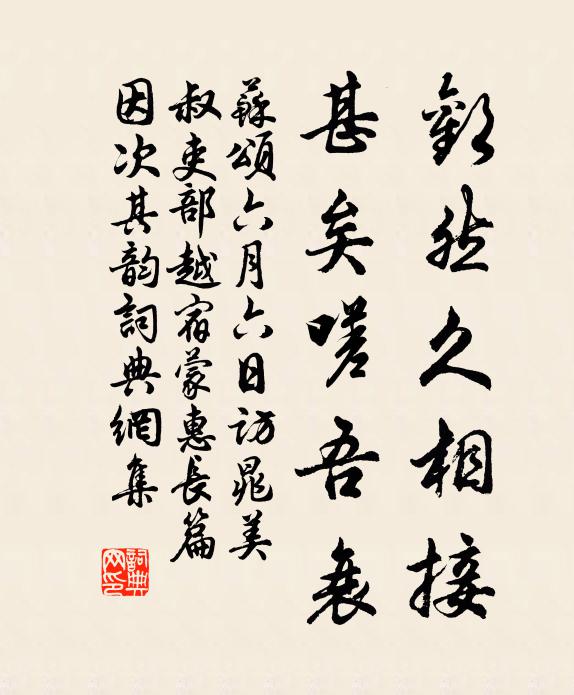 歡然久相接
甚矣嗟吾衰
蘇頌六月六日訪晁美
叔吏部越宿蒙惠長篇
因次其韵詞典網集
詞典網印